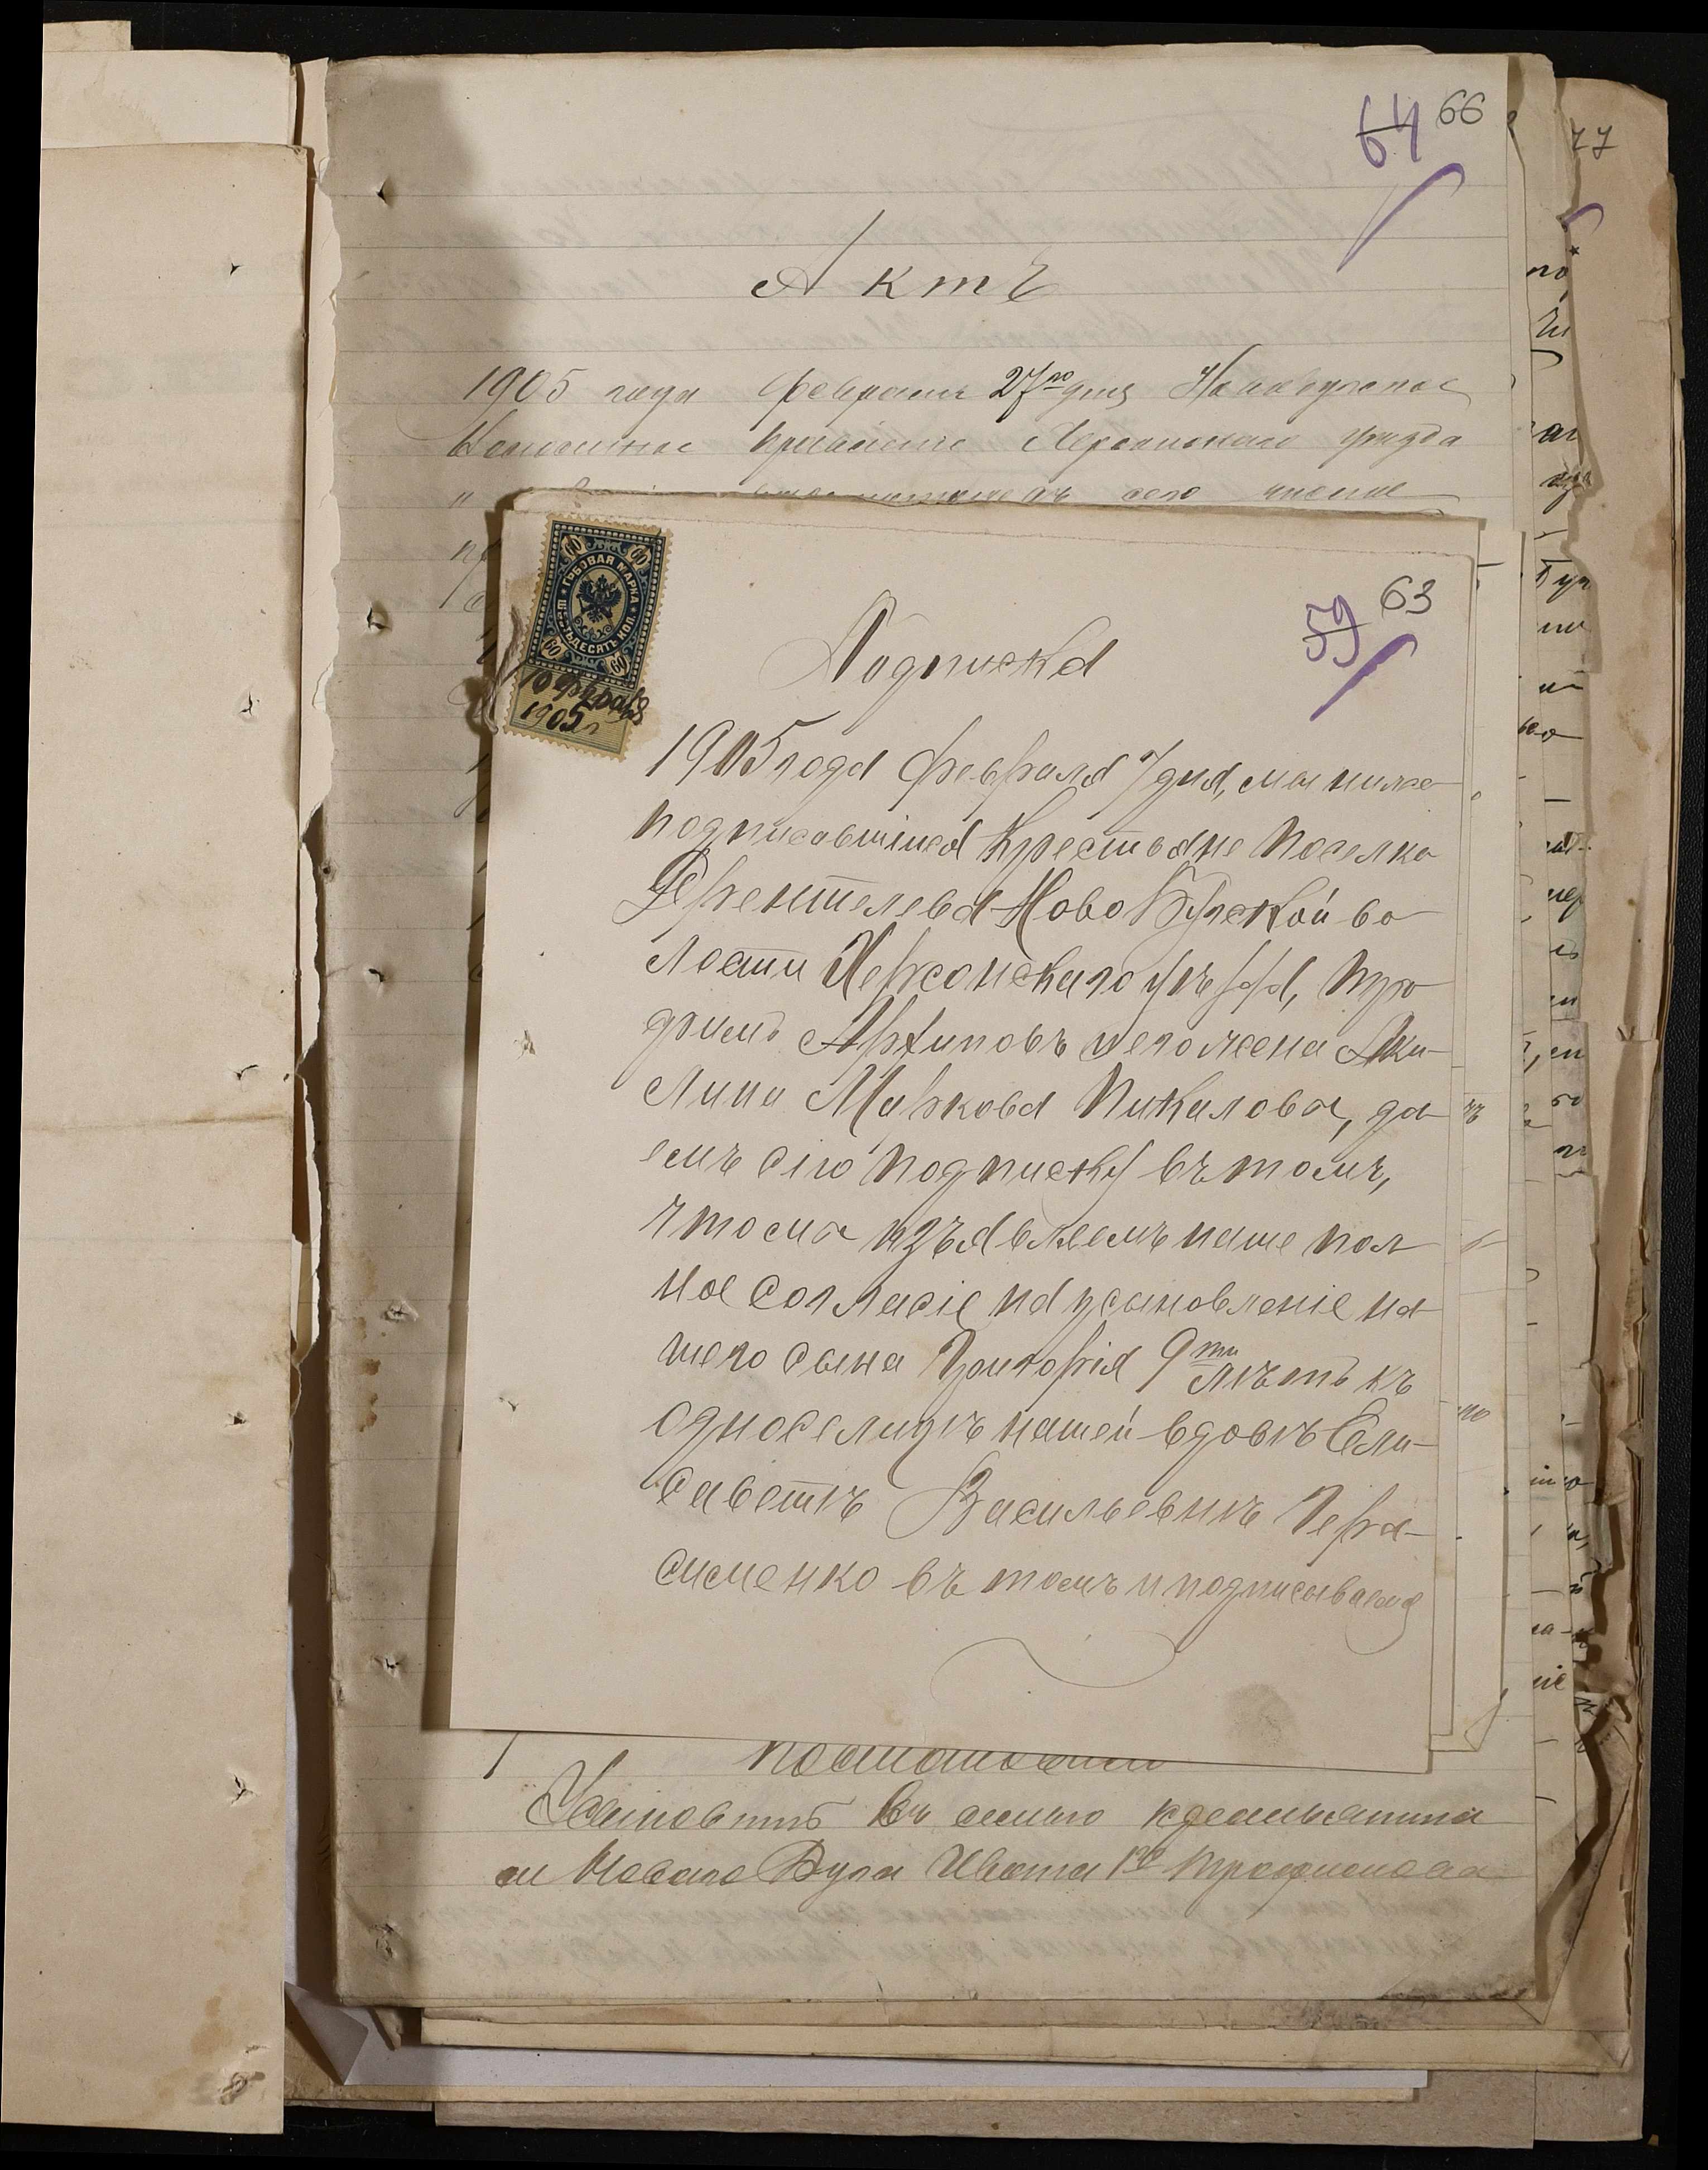 64 66
77
Актъ
1905 года Февраля 27го дня Новобугское
Волостное Правленіе Херсонскаго уѣзда
сего числа
59 63
ГЕРБОВАЯ МАРКА
ШЕСТЬДЕСЯТЪ КОП.
60 60 60 60
10 февраля
1905 г
Подписка
1905 года февраля 7 дня, мы ниже
подписавшіися Крестьяне поселка
Ново Бугской во
лости Херсонскаго уѣзда, Тро
фимъ Архиповъ и его жена Аку
лина Маркова Пикалова, да
емъ сію подписку въ томъ,
что мы изъявляемъ наше пол
ное согласіе на усыновленіе на
шего сына Григорія 9ти лѣтъ къ
односелицѣ нашей вдовѣ Ели
саветѣ Васильевнѣ Гера
сименко въ томъ и подписываемся
постановили
Усыновить въ семью крестьянина
Новаго Буга Ивана 1го Трофимова